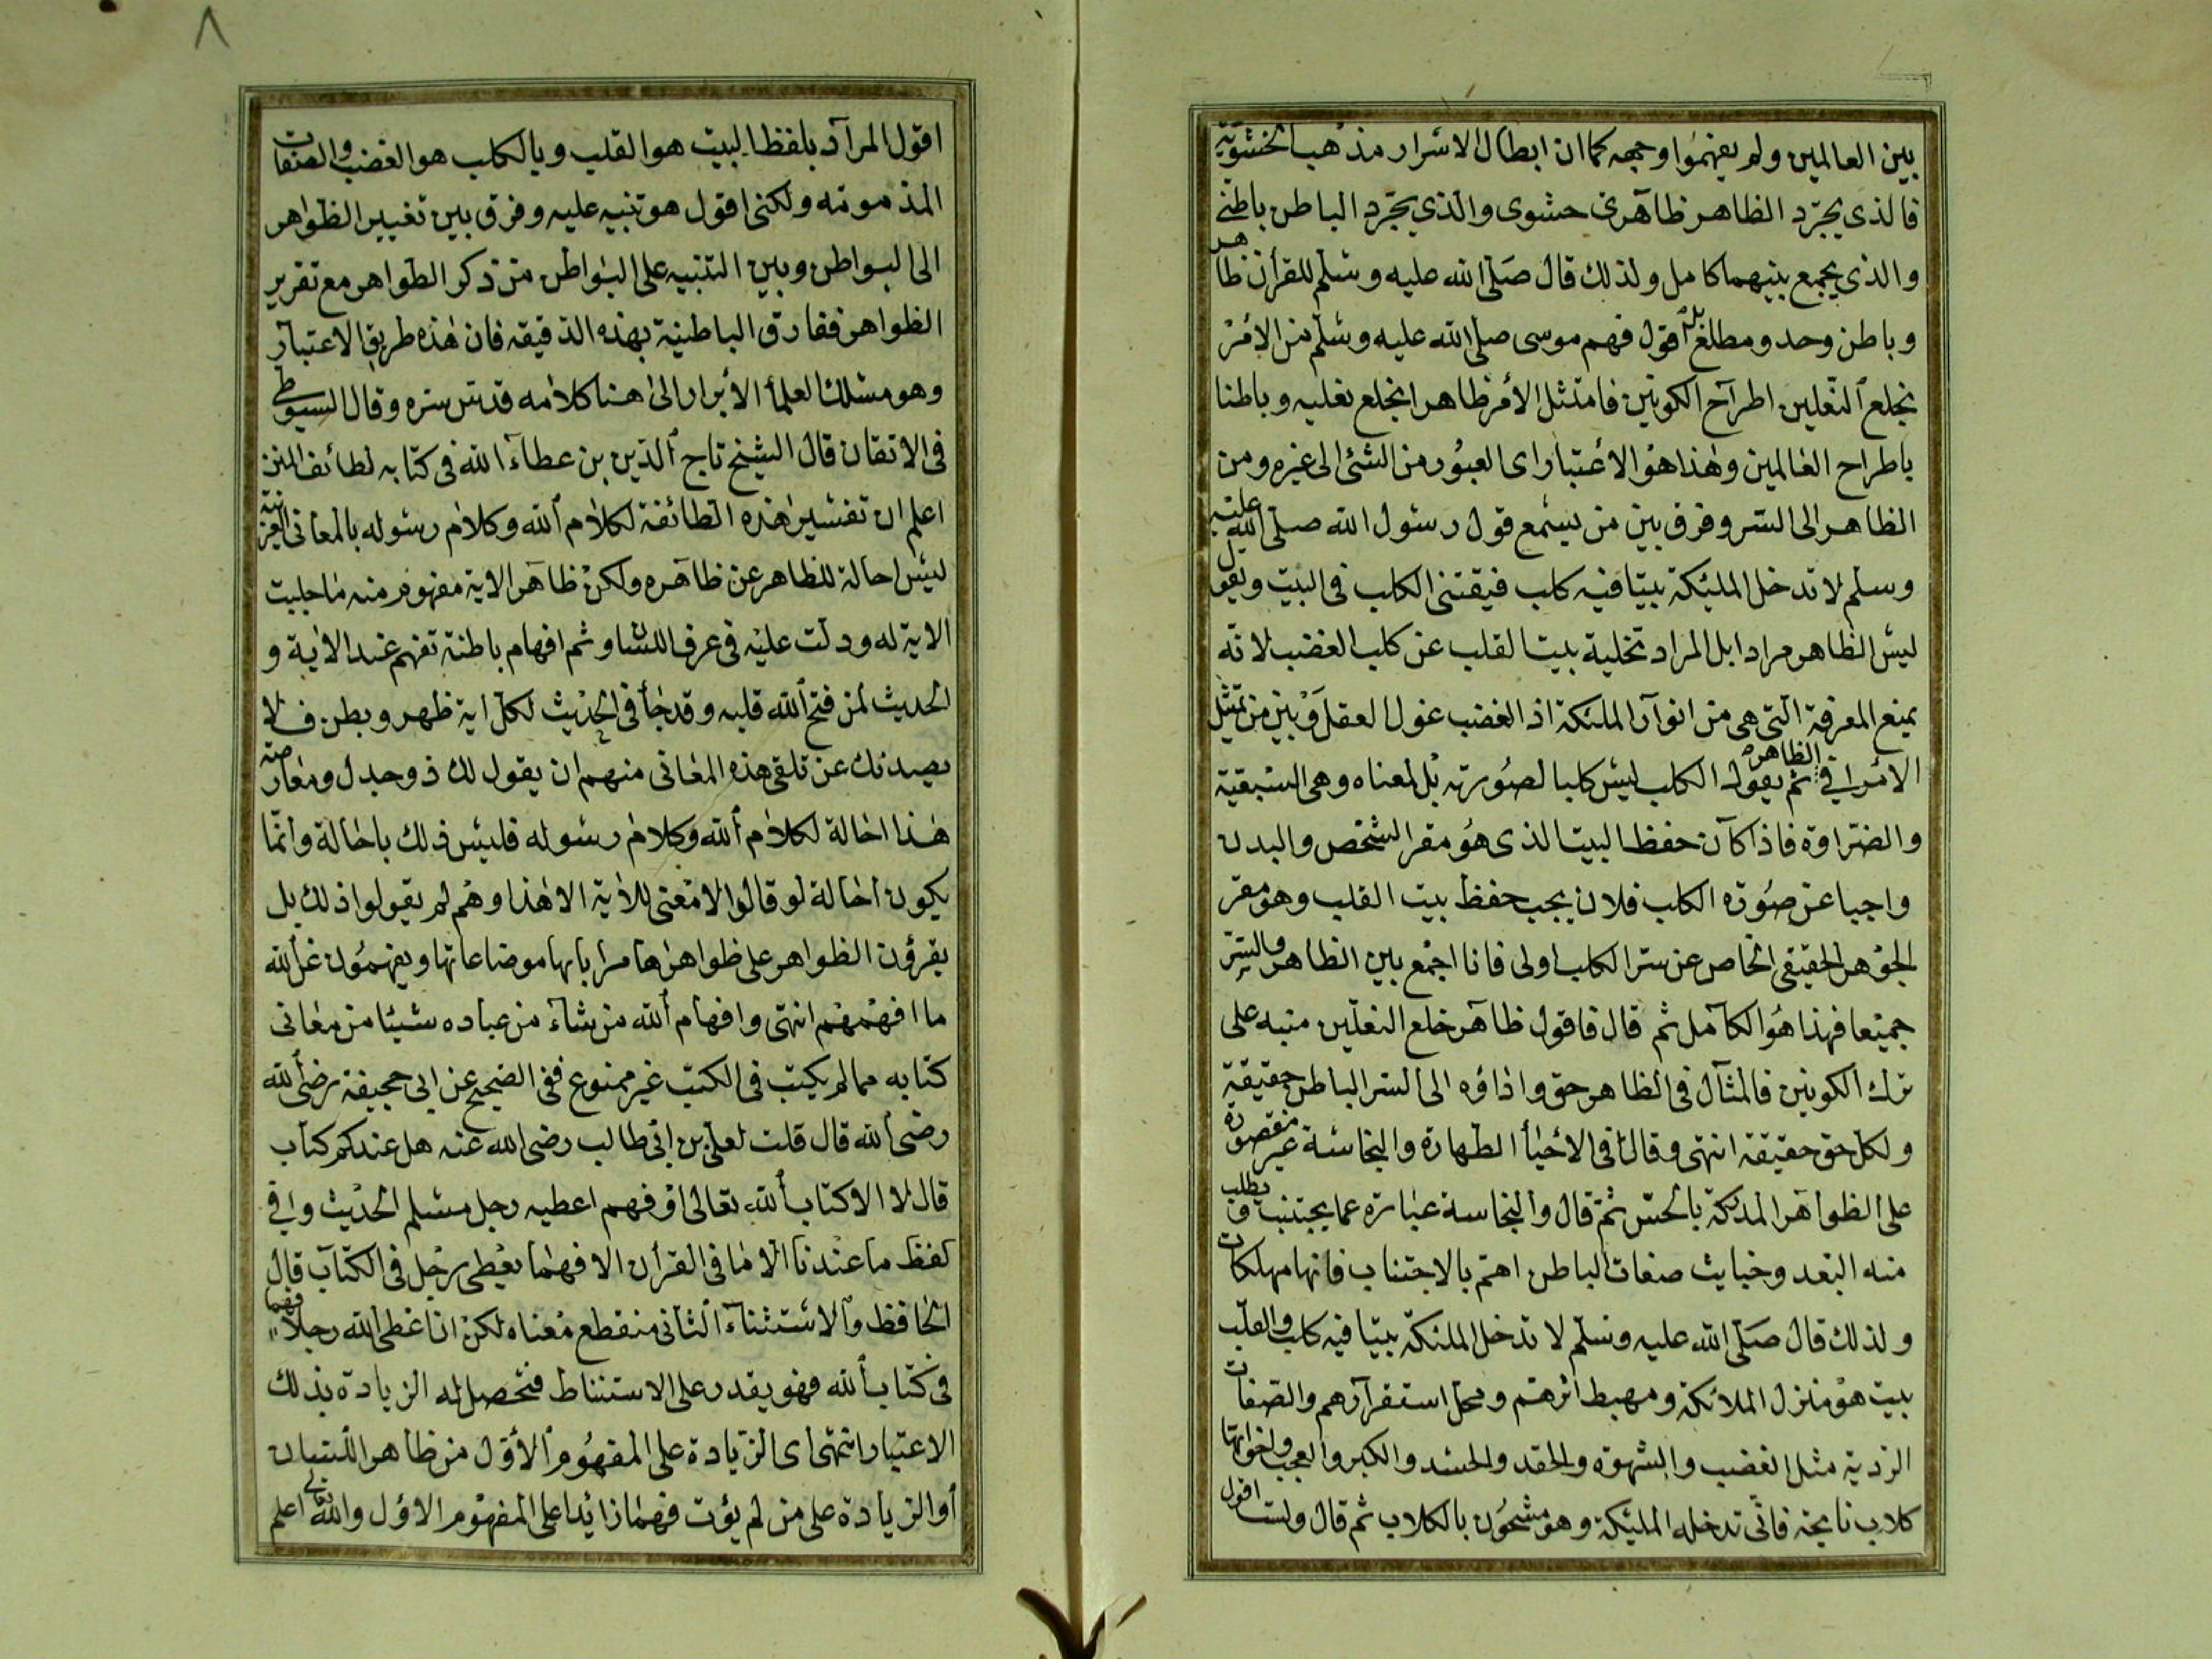 بين العالمين ولم يفهموا وجهه كما ان ابطال الاسرار مذهب الحشوية
فالذى يجرد الظاهر ظاهرى حشوى والذى يجرد الباطن باطنى
والذى يجمع بينهما كامل ولذلك قال صلى الله عليه وسلم للقرأن ظاهر
وباطن وحد ومطلع بل اقول فهم موسى صلى الله عليه وسلم من الامر
بخلع النعلين اطراح الكونين فامتثل الأمر ظاهرا بخلع نعليه وباطنا
باطراح العالمين وهذا هو الاعتبار اى العبور من الشئ الى غيره ومن
الظاهر الى السر وفرق بين من يسمع قول رسول الله صلى الله عليه
وسلم لا تدخل المليكة بيتا فيه كلب فيقتنى الكلب فى البيت ويقول
ليس الظاهر مرادا بل المراد تخلية بيت القلب عن كلب الغضب لانه
يمنع المعرفة التى هى من انوار الملئكة اذ الغضب غول العقل وبين من يمتثل
الأمر فى الظاهر ثم يقول الكلب ليس كلبا لصورته بل لمعناه وهى السبقية
والضراوة فاذا كان حفظ البيت الذى هو مقر الشخص والبدن
واجبا عن صورة الكلب فلان يجب حفظ بيت القلب وهو مقر
الجوهر الحقيقى الخاص عن سر الكلب اولى فانا اجمع بين الظاهر والسر
جميعا فهذا هو الكامل ثم قال فاقول ظاهر خلع النعلين منبه على
ترك الكونين فالمثال فى الظاهر حق واداؤه الى السر الباطن حقيقة
ولكل حق حقيقة انتهى وقال فى الأحياأ الطهارة والنجاسة غير مقصورة
على الظواهر المدركة بالحس ثم قال والنجاسة عبارة عما يجتنب ويطلب
منه البعد وخبايث صفات الباطن اهم بالاجتناب فانها مهلكات
ولذلك قال صلى الله عليه وسلم لا تدخل الملئكة بيتا فيه كلب والقلب
بيت هو منزل الملائكة ومهبط اثرهم ومحل استقرارهم والصفات
الردية مثل الغضب والشهوة والحقد والحسد والكبر والعجب واخواتها
كلاب نابحة فانى تدخله المليكة وهو مشحون بالكلاب ثم قال ولست اقول
٨
اقول المراد بلفظ البيت هو القلب وبالكلب هو الغضب والصفات
المذمومة ولكنى اقول هو تنبيه عليه وفرق بين تغيير الظواهر
الى البواطن وبين التنبيه على البواطن من ذكر الظواهر مع تقرير
الظواهر ففارق الباطنية بهذه الدقيقه فان هذه طريق الاعتبار
وهو مسلك العلمأ الأبرار الى هنا كلامه قدس سره وقال السيوطى
فى الاتقان قال الشيخ تاج الدين بن عطاء الله فى كتابه لطائف المنن
اعلم ان تفسير هذه الطائفة لكلام الله وكلام رسوله بالمعانى الغريبة
ليس احالة للظاهر عن ظاهره ولكن ظاهر الاية مفهوم منه ما جلبت
الاية له ودلت عليه فى عرف اللسان وثم افهام باطنة تفهم عند الاية و
الحديث لمن فتح الله قلبه وقد جأ فى الحديث لكل اية ظهر وبطن فلا
يصدنك عن تلقى هذه المعانى منهم ان يقول لك ذو جدل ومعارضة
هذا احالة لكلام الله وكلام رسوله فليس ذلك باحالة وانما
يكون احالة لو قالوا لا معنى للأية الا هذا وهم لم يقولوا ذلك بل
يقرؤن الظواهر على ظواهرها مرادا بها موضوعاتها ويفهمون عن الله
ما افهمهم انتهى وافهام الله من شاء من عباده شيئا من معانى
كتابه مما لم يكتب فى الكتب غير ممنوع ففى الصحيح عن ابى جحيفة رضى الله
رضى الله قال قلت لعلى بن ابى طالب رضى الله عنه هل عندكم كتاب
قال لا الا كتاب الله تعالى او فهم اعطيه رجل مسلم الحديث وفى
لفظ ما عندنا الا ما فى القرأن الا فهما يعطى رجل فى الكتاب قال
الحافظ والاستثناء الثانى منقطع معناه لكن ان اعطى الله رجلا فهما
فى كتاب الله فهو يقدر على الاستنباط فتحصل له الزيادة بذلك
الاعتبار انتهى اى الزيادة على المفهوم الأول من ظاهر اللسان
او الزيادة على من لم يؤت فهما زائدا على المفهوم الاول والله تعالى اعلم